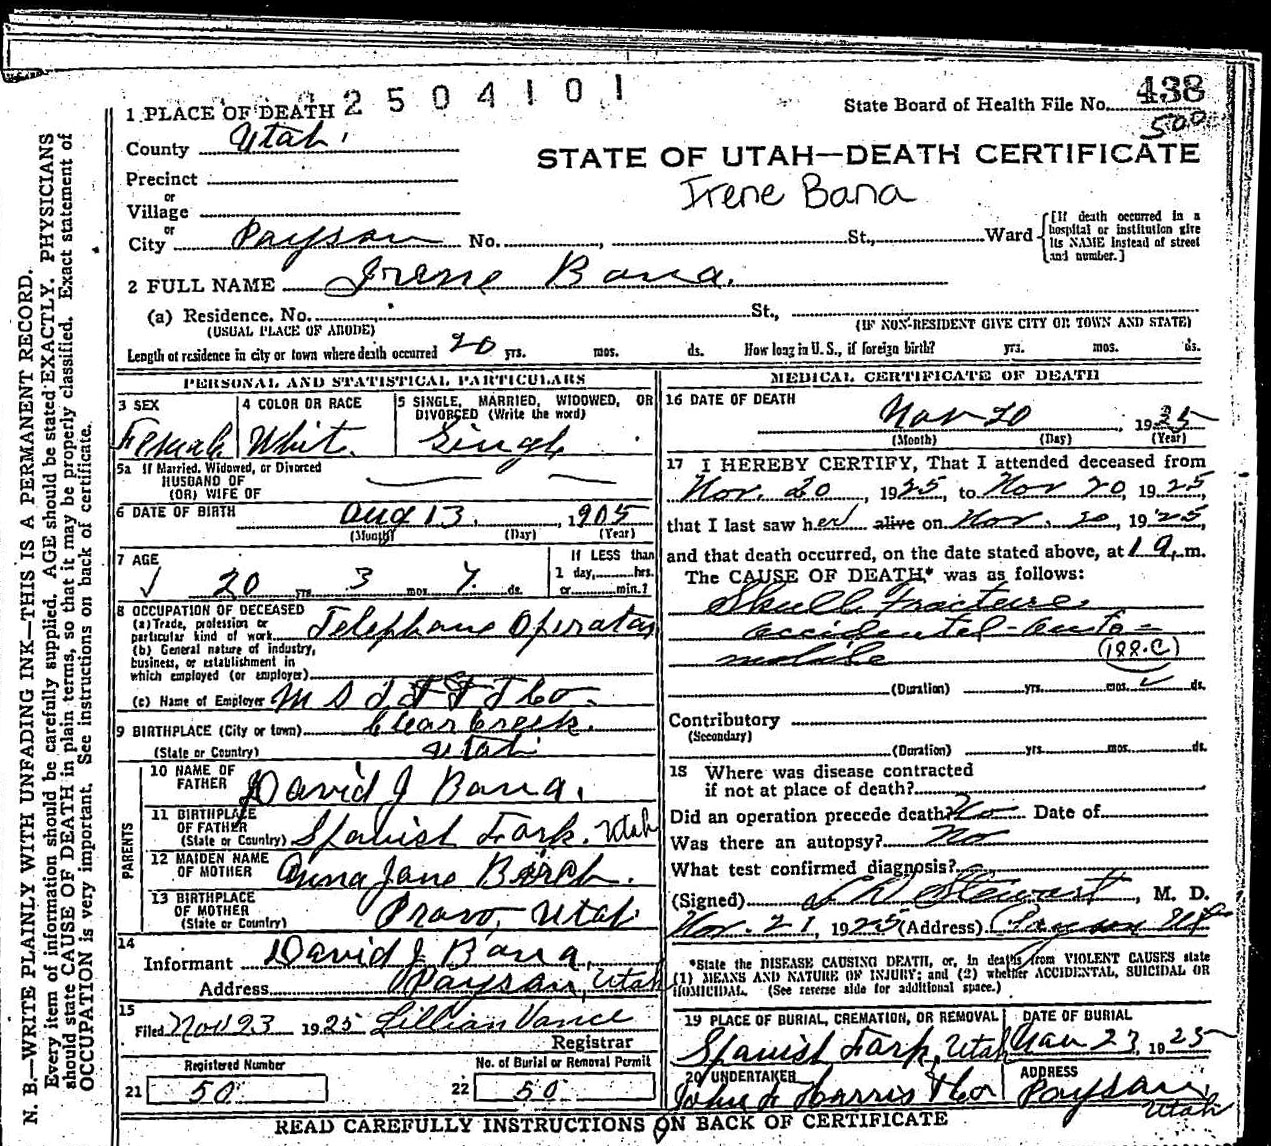 2504101
1 PLACE OF DEATH
State Board of Health File No. 438
500
County Utah
STATE OF UTAH—DEATH CERTIFICATE
Irene Bana
Precinct
or
Village
or
City Payson No. , St., Ward
[If death occurred in a
hospital or institution give
its NAME instead of street
and number.]
2 FULL NAME Irene Bana.
(a) Residence. No. St.,
(USUAL PLACE OF ABODE) (IF NON-RESIDENT GIVE CITY OR TOWN AND STATE)
Length of residence in city or town where death occurred 20 yrs. mos. ds. How long in U. S., if foreign birth? yrs. mos. ds.
PERSONAL AND STATISTICAL PARTICULARS
3 SEX
Female
4 COLOR OR RACE
White.
5 SINGLE, MARRIED, WIDOWED, OR
DIVORCED (Write the word)
Single
5a If Married, Widowed, or Divorced
HUSBAND OF
(OR) WIFE OF
6 DATE OF BIRTH Aug 13. , 1905
(Month) (Day) (Year)
7 AGE
20 yrs. 3 mos. 7. ds.
If LESS than
1 day, hrs.
or min.?
8 OCCUPATION OF DECEASED
(a) Trade, profession or
particular kind of work Telephone Operator
(b) General nature of industry,
business, or establishment in
which employed (or employer)
(c) Name of Employer M S T & T Co
9 BIRTHPLACE (City or town) Clear Creek.
(State or Country) Utah
PARENTS
10 NAME OF
FATHER David J Bana.
11 BIRTHPLACE
OF FATHER
(State or Country) Spanish Fork. Utah
12 MAIDEN NAME
OF MOTHER Anna Jane Birch.
13 BIRTHPLACE
OF MOTHER
(State or Country) Provo, Utah
14
Informant David J Bana,
Address Payson, Utah
15
Filed Nov 23 1925 Lillian Vance
Registrar
Registered Number
21 50
No. of Burial or Removal Permit
22 50
MEDICAL CERTIFICATE OF DEATH
16 DATE OF DEATH
Nov 20 , 1925
(Month) (Day) (Year)
17 I HEREBY CERTIFY, That I attended deceased from
Nov. 20 , 1925, to Nov 20, 1925,
that I last saw her alive on Nov. 20, 1925,
and that death occurred, on the date stated above, at 1 a. m.
The CAUSE OF DEATH* was as follows:
Skull Fracture
accidental - auto-
mobile (188.C)
(Duration) yrs. mos. ds.
Contributory
(Secondary)
(Duration) yrs. mos. ds.
18 Where was disease contracted
if not at place of death?
Did an operation precede death? No Date of
Was there an autopsy? No
What test confirmed diagnosis?
(Signed) Stewart, M. D.
Nov. 21, 1925 (Address) Payson Ut
*State the DISEASE CAUSING DEATH, or, in deaths from VIOLENT CAUSES state
(1) MEANS AND NATURE OF INJURY; and (2) whether ACCIDENTAL, SUICIDAL OR
HOMICIDAL. (See reverse side for additional space.)
19 PLACE OF BURIAL, CREMATION, OR REMOVAL
Spanish Fork, Utah
DATE OF BURIAL
Nov 23, 1925
20 UNDERTAKER
John Harris & Co
ADDRESS
Payson,
Utah
READ CAREFULLY INSTRUCTIONS ON BACK OF CERTIFICATE
N. B.—WRITE PLAINLY WITH UNFADING INK—THIS IS A PERMANENT RECORD.
Every item of information should be carefully supplied. AGE should be stated EXACTLY. PHYSICIANS
should state CAUSE OF DEATH in plain terms, so that it may be properly classified. Exact statement of
OCCUPATION is very important. See instructions on back of certificate.